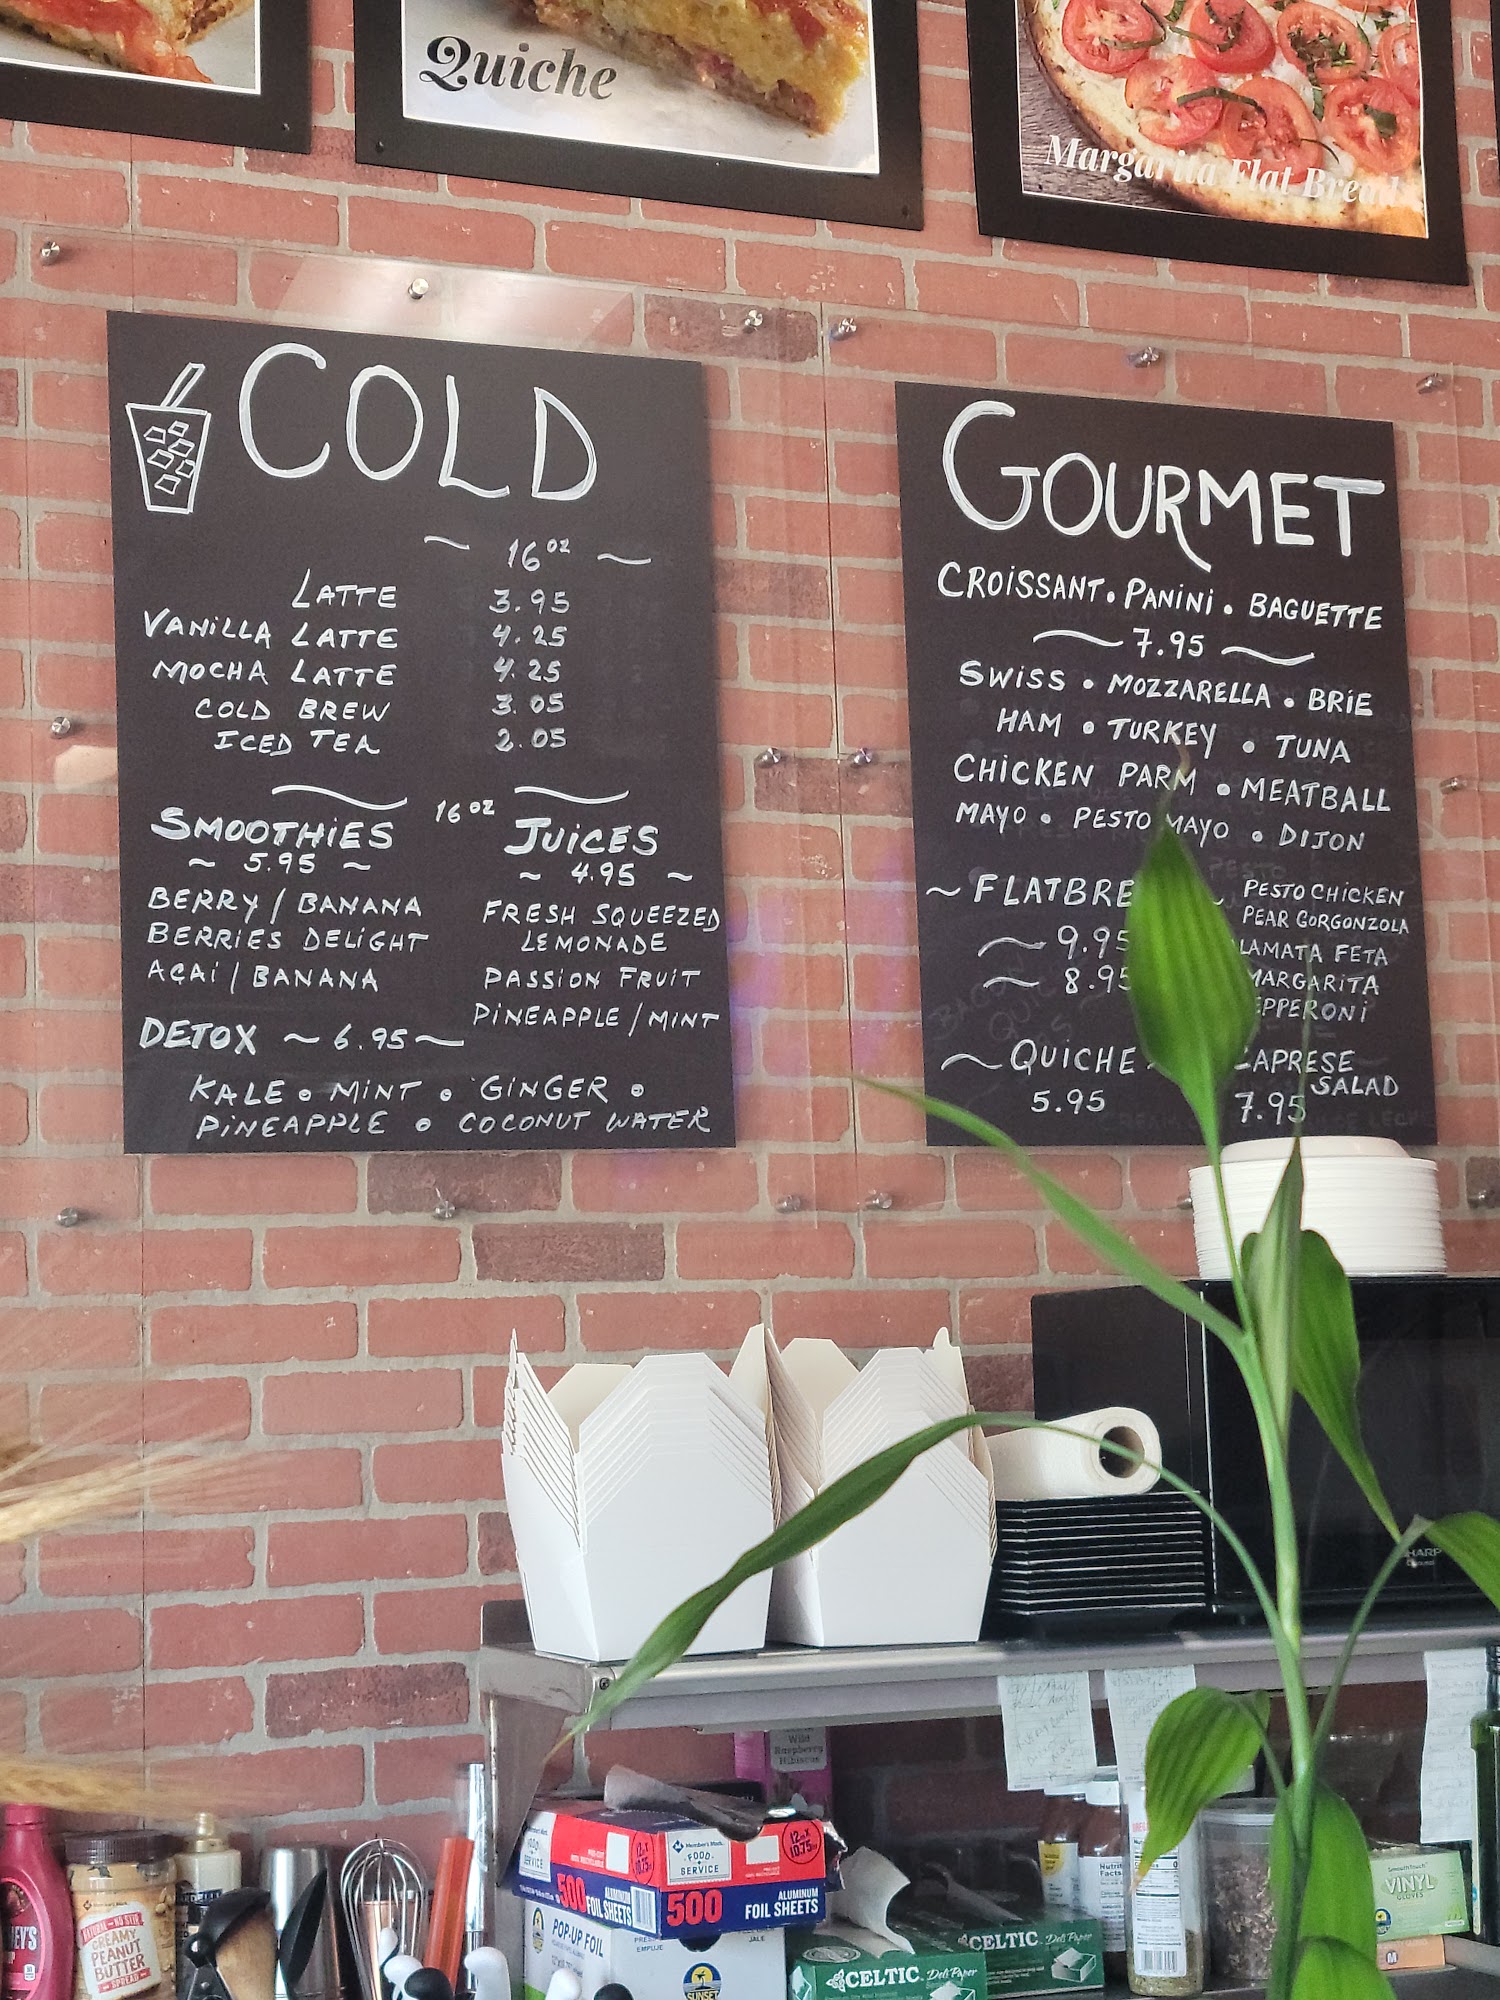 Quiche
Margarita Flat Bread
COLD
~ 16oz ~
LATTE 3.95
VANILLA LATTE 4.25
MOCHA LATTE 4.25
COLD BREW 3.05
ICED TEA 2.05
16oz
SMOOTHIES
~ 5.95 ~
BERRY / BANANA
BERRIES DELIGHT
AÇAI / BANANA
JUICES
~ 4.95 ~
FRESH SQUEEZED
LEMONADE
PASSION FRUIT
PINEAPPLE / MINT
DETOX ~ 6.95 ~
KALE • MINT • GINGER •
PINEAPPLE • COCONUT WATER
GOURMET
CROISSANT • PANINI • BAGUETTE
~ 7.95 ~
SWISS • MOZZARELLA • BRIE
HAM • TURKEY • TUNA
CHICKEN PARM • MEATBALL
MAYO • PESTO MAYO • DIJON
~ FLATBRE
~ 9.95
~ 8.95
PESTO CHICKEN
PEAR GORGONZOLA
LAMATA FETA
MARGARITA
EPPERONI
~ QUICHE
5.95
CAPRESE
SALAD
7.95
SHARP
Wild
Raspberry
Hibiscus
Member's Mark
FOOD
SERVICE
12in x
10.75in
500 FOIL SHEETS
500 ALUMINUM
FOIL SHEETS
POP-UP FOIL
SUNSET
CELTIC Deli Paper
CELTIC Deli Paper
Nutrition
Facts
SmoothTouch
VINYL
GLOVES
M
EY'S
NATURAL NO STIR
CREAMY
PEANUT
BUTTER
SPREAD